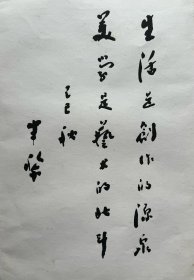 生活是創作的源泉
美學是藝术的北斗
己巳秋